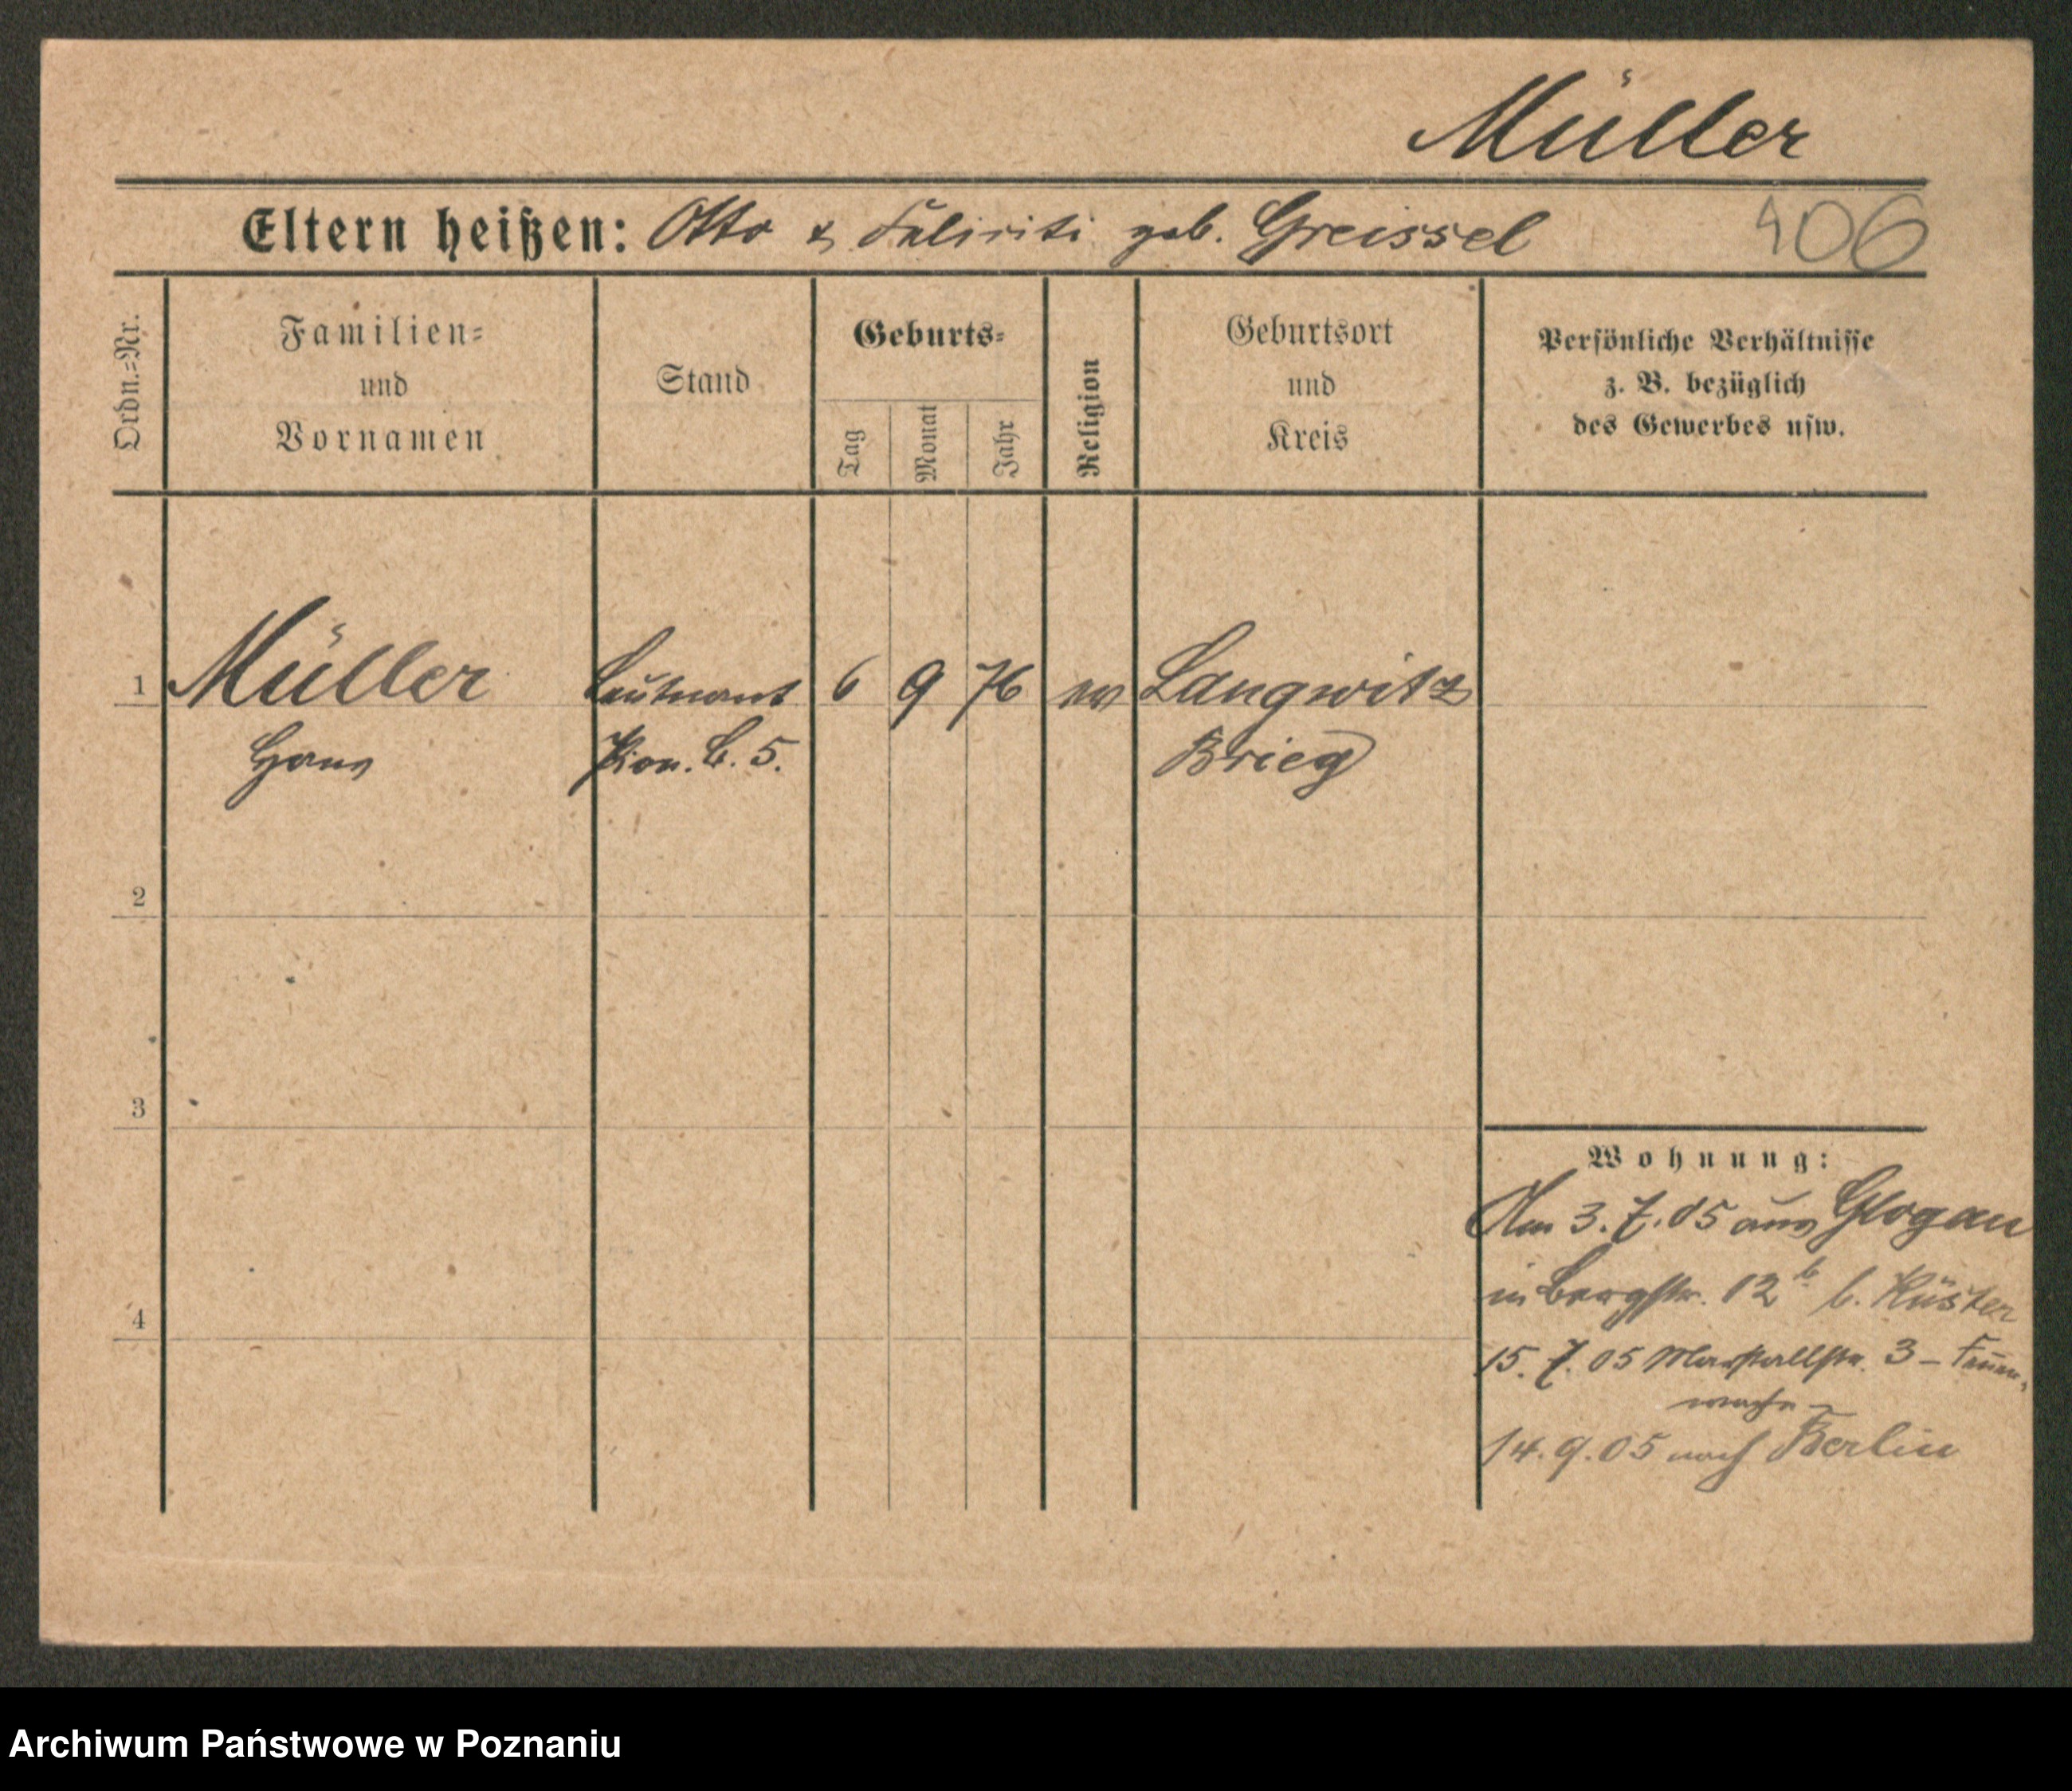 Müller
Eltern heißen: Otto & geb. Greissel
406
Ordn.=Nr.
Familien=
und
Vornamen
Stand
Geburts=
Tag
Monat
Jahr
Religion
Geburtsort
und
Kreis
Persönliche Verhältnisse
z. B. bezüglich
des Gewerbes usw.
1 Müller Leutnant 6 9 76 ev Langwitz
Hans Pion. B. 5. Brieg
2
3
4
Wohnung:
Am 3.7.05 aus Glogau
in Bergstr. 12b b. Küster
15.7.05 Marstallstr. 3 –
14.9.05 nach Berlin
Archiwum Państwowe w Poznaniu